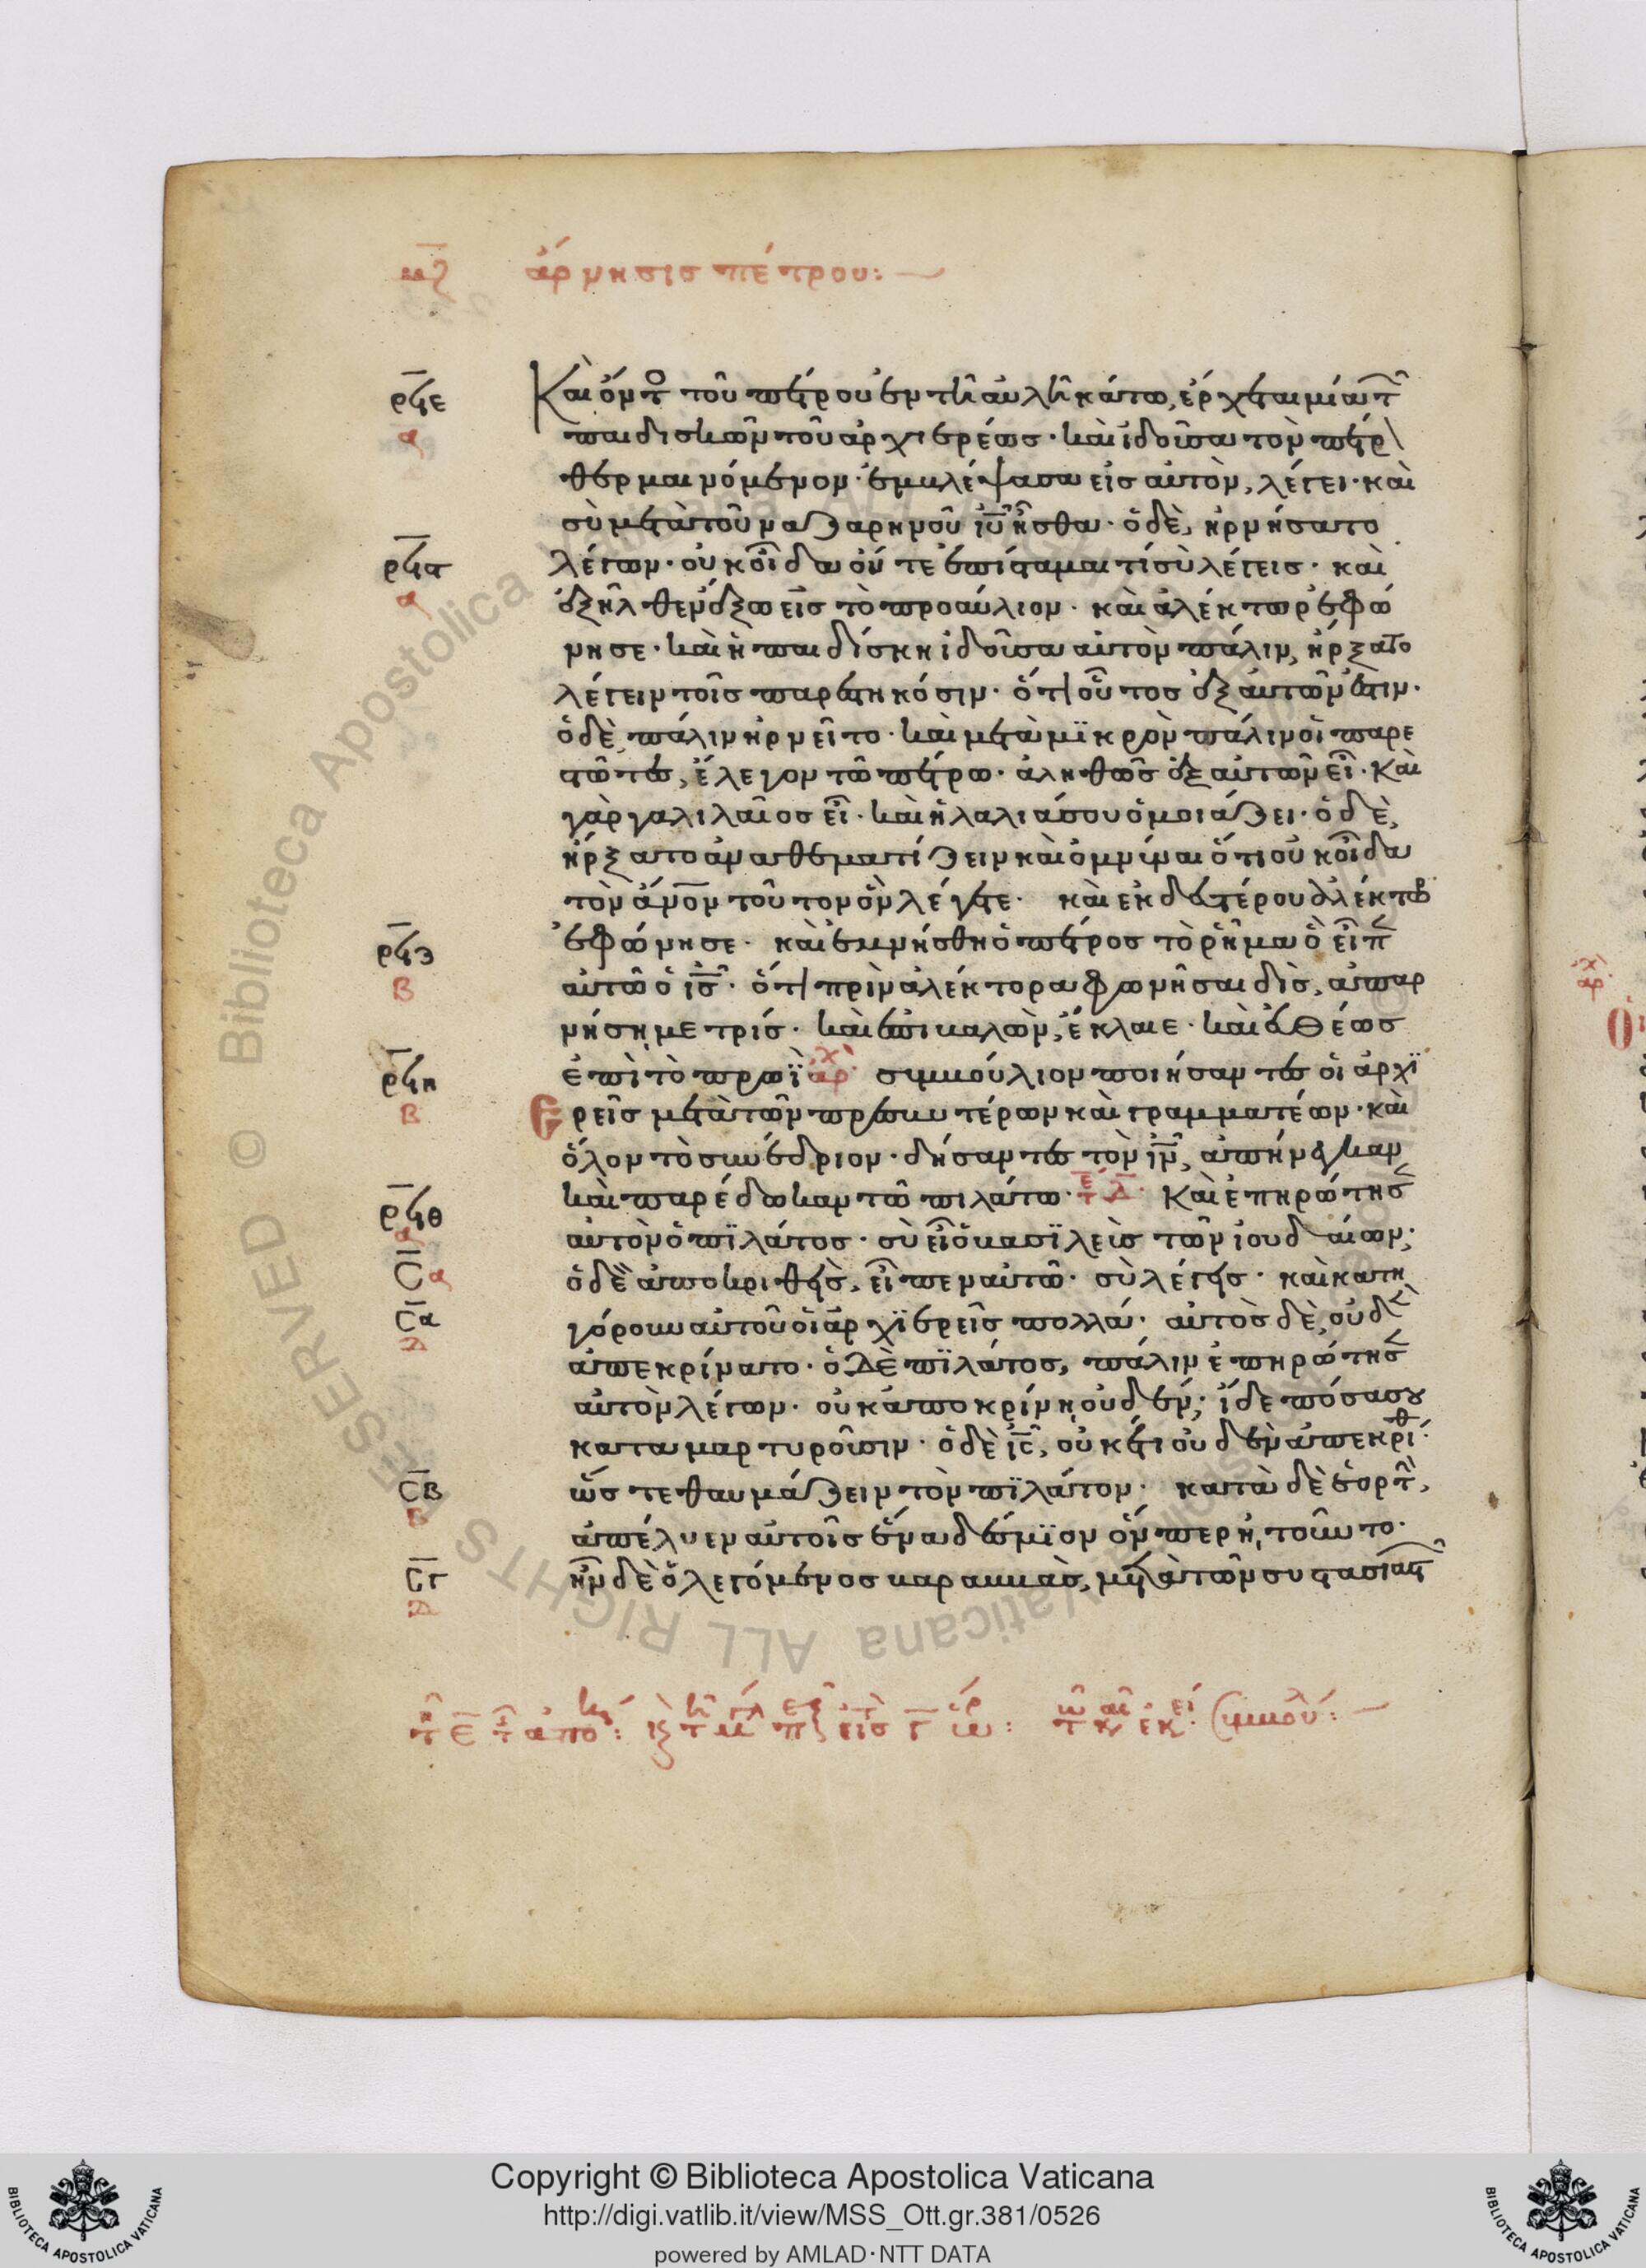 μζ ἄρνησις πέτρου:—
Καὶ ὄντ⁰ τοῦ πέτρου ἐν τῆ αὐλῆ κάτω, ἔρχεται μία τ
ρϟε
α
παιδισκῶν τοῦ ἀρχιερέως· καὶ ἰδοῦσα τὸν πέτρ\
θερμαινόμενον· ἐμβλέψασα εἰς αὐτὸν, λέγει· καὶ
σὺ μετὰ τοῦ ναζαρηνοῦ ἰῦ ἦσθα· ὁ δὲ, ἠρνήσατο
ρϟϛ
α
λέγων· οὐκ οἶδα οὔτε ἐπίσταμαι τί σὺ λέγεις· καὶ
ἐξῆλθεν ἔξω εἰς τὸ προαύλιον· καὶ ἀλέκτωρ ἐφώ
νησε· καὶ ἡ παιδίσκη ἰδοῦσα αὐτὸν πάλιν, ἤρξατο
λέγειν τοῖς παρεστηκόσιν· ὅτι οὗτος ἐξ αὐτῶν ἐστιν·
ὁ δὲ, πάλιν ἠρνεῖτο· καὶ μετὰ μϊκρὸν πάλιν οἱ παρε
στῶτες, ἔλεγον τῶ πέτρω· ἀληθῶς ἐξ αὐτῶν εἶ· καὶ
γὰρ γαλιλαῖος εἶ· καὶ ἡ λαλιά σου ὁμοιάζει· ὁ δὲ,
ἤρξατο ἀναθεματίζειν καὶ ὀμνύναι ὅτι οὐκ οἶδα
τὸν ἄνον τοῦτον ὃν λέγετε· καὶ ἐκ δευτέρου ἀλέκτωρ
ρϟζ
β
ἐφώνησε· καὶ ἐμνήσθη ὁ πέτρος τὸ ῥῆμα ὃ εἶπ
αὐτῶ ὁ ἰς· ὅτι πρὶν ἀλέκτορα φωνῆσαι δὶς, ἀπαρ
νήση με τρίς· καὶ ἐπιβαλὼν, ἔκλαιε· καὶ εὐθέως
ρϟη
β
ἐπὶ τὸ πρωῒ ἀρχ συμβούλιον ποιήσαντες οἱ ἀρχϊ
ερεῖς μετὰ τῶν πρεσβυτέρων καὶ γραμματέων· καὶ
ὅλον τὸ συνέδριον· δήσαντες τὸν ἰν, ἀπήνεγκαν
καὶ παρέδωκαν τῶ πιλάτω· τε λ· Καὶ ἐπηρώτησ
ρϟθ
α
αὐτὸν ὁ πϊλάτος· σὺ εἶ ὁ βασϊλεὺς τῶν ἰουδαίων;
σ
α
ὁ δὲ ἀποκριθεὶς, εἶπεν αὐτῶ· σὺ λέγεις· καὶ κατη
σα
δ
γόρουν αὐτοῦ οἱ ἀρχϊερεῖς πολλά· αὐτὸς δὲ, οὐδὲ
ἀπεκρίνατο· ὁ δὲ πϊλάτος, πάλιν ἐπηρώτησ
αὐτὸν λέγων· οὐκ ἀποκρίνη οὐδέν; ἴδε πόσα σου
καταμαρτυροῦσιν· ὁ δὲ ἰς, οὐκέτι οὐδὲν ἀπεκρίθ·
σβ
ὥστε θαυμάζειν τὸν πϊλάτον· κατὰ δὲ ἑορτ,
ἀπέλυεν αὐτοῖς ἕνα δέσμϊον ὅνπερ ἠτοῦντο·
σγ
δ
ἦν δὲ ὁ λεγόμενος βαραββὰς, μετὰ τῶν συστασιαστ
Copyright © Biblioteca Apostolica Vaticana
http://digi.vatlib.it/view/MSS_Ott.gr.381/0526
powered by AMLAD·NTT DATA
BIBLIOTECA APOSTOLICA VATICANA
BIBLIOTECA APOSTOLICA VATICANA
© Biblioteca Apostolica Vaticana ALL RIGHTS RESERVED